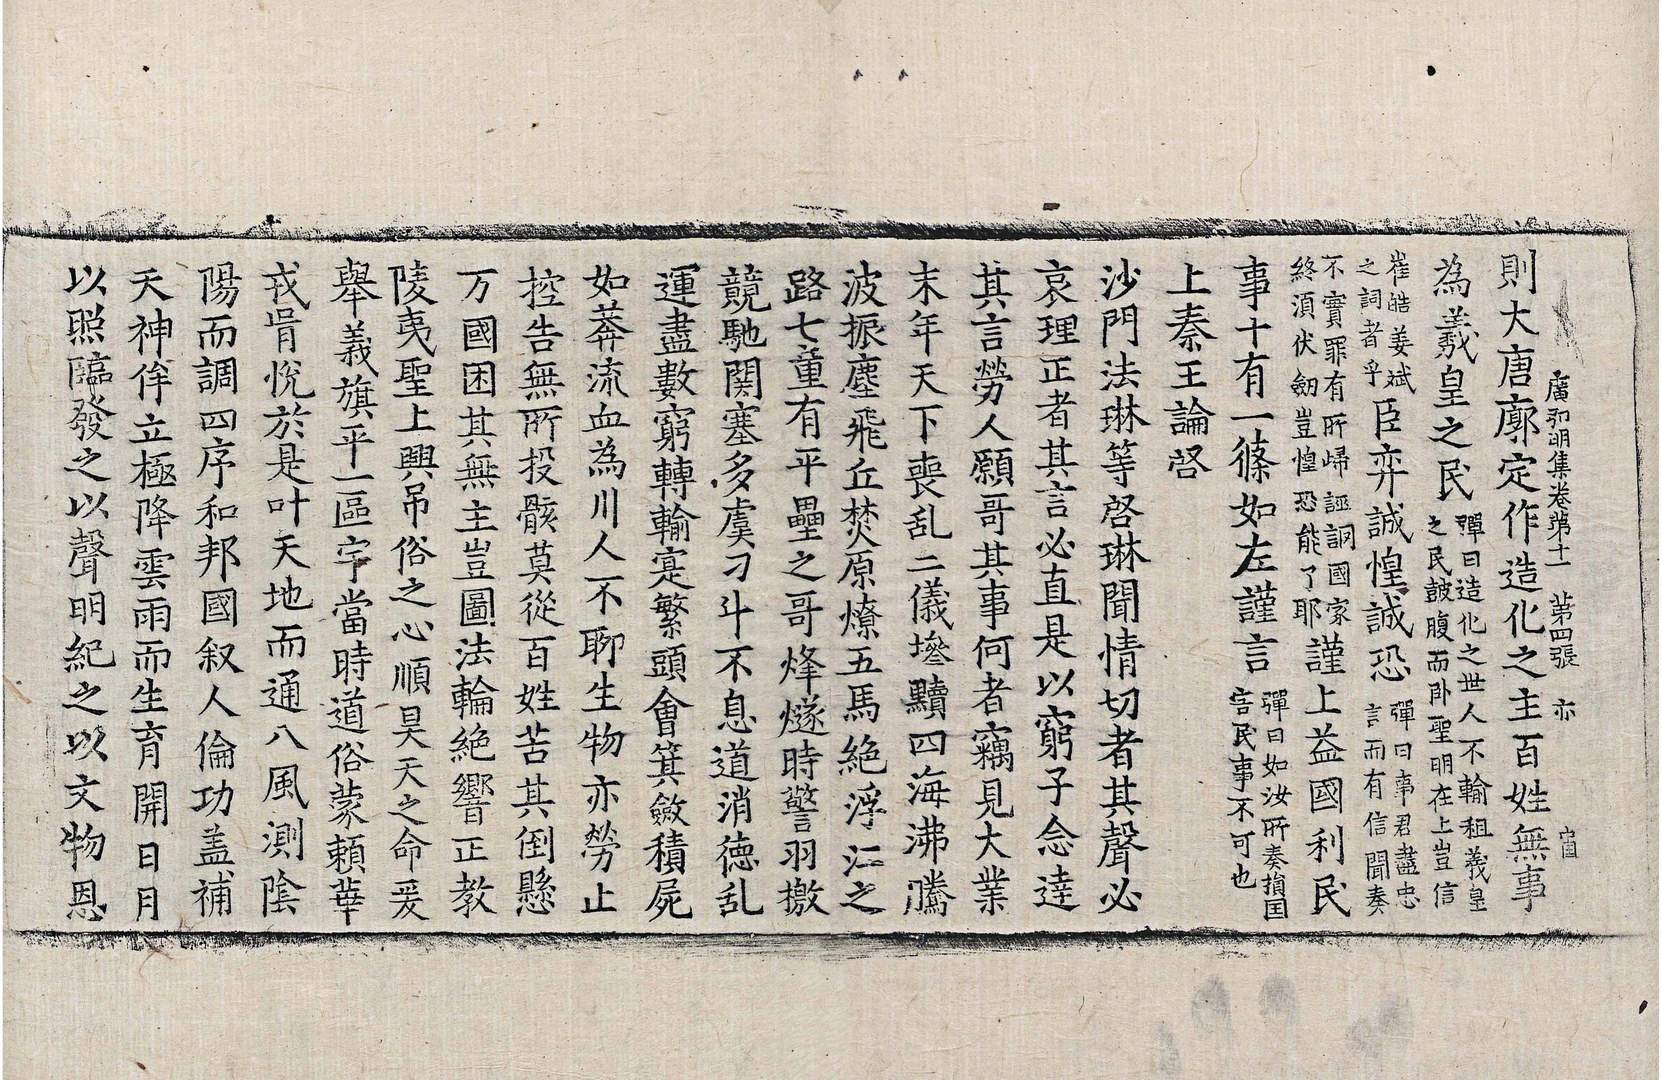 廣弘明集卷第十一　第四張　亦
則大唐廓定作造化之主百姓無事
為羲皇之民彈曰造化之世人不輸租義皇之民皷腹而卧聖明在上豈信
崔皓姜斌之詞者乎臣弈誠惶誠恐彈曰事君盡忠言而有信聞奏
不實罪有所歸誣詗國家終湏伏劒豈惶恐能了耶謹上益國利民
事十有一條如左謹言彈曰如汝所奏損国害民事不可也
上秦王論啓
沙門法琳等啓琳聞情切者其聲必
哀理正者其言必直是以窮子念達
其言勞人願哥其事何者竊見大業
末年天下喪乱二儀墋黷四海沸騰
波振塵飛丘焚原燎五馬絕浮江之
路七童有平壘之哥烽燧時警羽檄
競馳関塞多虞刁斗不息道消德乱
運盡數窮轉輸寔繁頭會箕斂積屍
如莽流血為川人不聊生物亦勞止
控告無所投骸莫從百姓苦其倒懸
万國困其無主豈圖法輪絕響正教
陵夷聖上興吊俗之心順昊天之命爰
舉義旗平一區宇當時道俗蒙賴華
戎肯悅於是叶天地而通八風測陰
陽而調四序和邦國叙人倫功盖補
天神侔立極降雲雨而生育開日月
以照臨發之以聲明紀之以文物恩